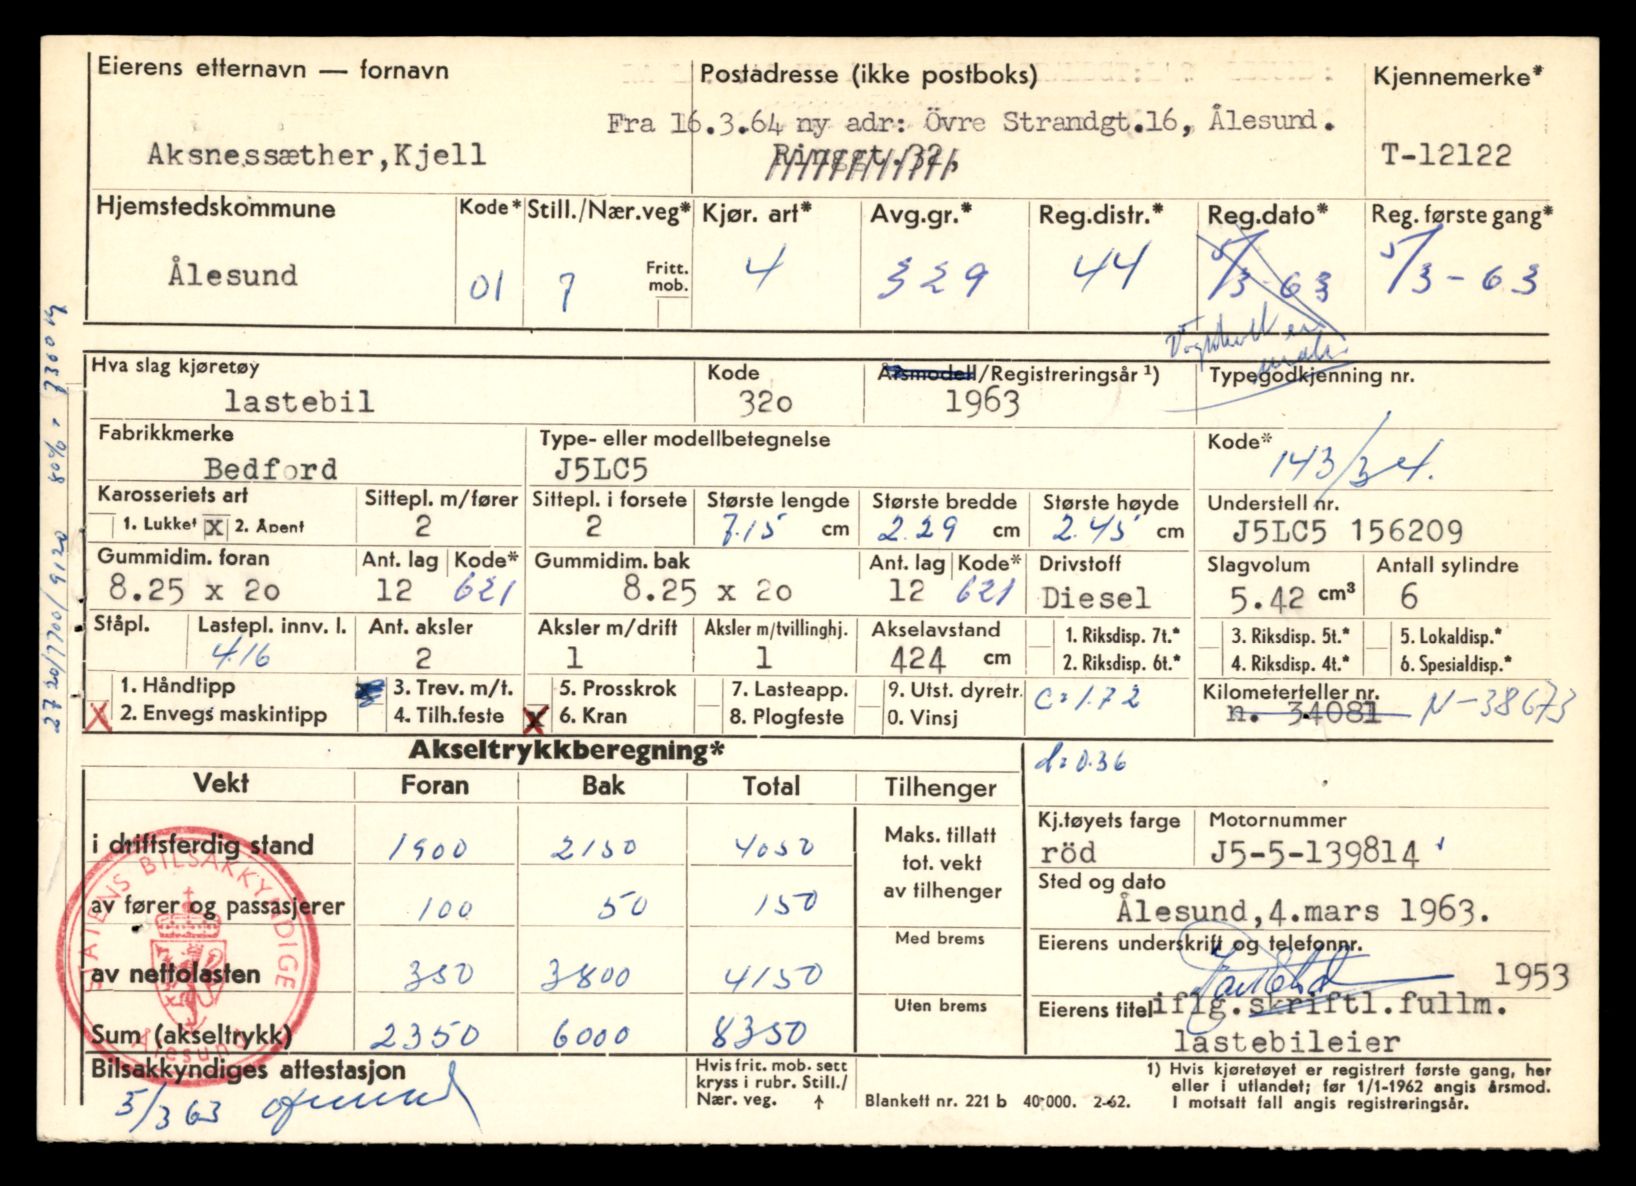 Eierens etternavn — fornavn Postadresse (ikke postboks) Kjennemerke*
Fra 16.3.64 ny adr: Övre Strandgt.16, Ålesund.
Aksnessæther,Kjell Ringgt.32, T-12122
Hjemstedskommune Kode* Still./Nær.veg* Kjør. art* Avg.gr.* Reg.distr.* Reg.dato* Reg. første gang*
Ålesund 01 7 Fritt. mob. 4 329 44 5/3-63 5/3-63
Hva slag kjøretøy Kode Årsmodell/Registreringsår ¹) Typegodkjenning nr.
lastebil 320 1963
Fabrikkmerke Type- eller modellbetegnelse Kode*
Bedford J5LC5 143/34.
Karosseriets art Sittepl. m/fører Sittepl. i forsete Største lengde Største bredde Største høyde Understell nr.
1. Lukket x 2. Åpent 2 2 7.15 cm 2.29 cm 2.45 cm J5LC5 156209
Gummidim. foran Ant. lag Kode* Gummidim. bak Ant. lag Kode* Drivstoff Slagvolum Antall sylindre
8.25 x 20 12 621 8.25 x 20 12 621 Diesel 5.42 cm³ 6
Ståpl. Lastepl. innv. l. Ant. aksler Aksler m/drift Aksler m/tvillinghj. Akselavstand 1. Riksdisp. 7t.* 3. Riksdisp. 5t.* 5. Lokaldisp.*
4.16 2 1 1 424 cm 2. Riksdisp. 6t.* 4. Riksdisp. 4t.* 6. Spesialdisp.*
1. Håndtipp x 3. Trev. m/t. 5. Prosskrok 7. Lasteapp. 9. Utst. dyretr. C=1.72 Kilometerteller nr.
X 2. Envegs maskintipp 4. Tilh.feste x 6. Kran 8. Plogfeste 0. Vinsj n. 34081 N-38673
Akseltrykkberegning* d=0.36
Vekt Foran Bak Total Tilhenger
i driftsferdig stand 1900 2150 4050 Maks. tillatt tot. vekt av tilhenger
Kj.tøyets farge Motornummer
röd J5-5-139814
av fører og passasjerer 100 50 150
Sted og dato
Ålesund,4.mars 1963.
Med brems
Eierens underskrift og telefonnr.
av nettolasten 350 3800 4150 1953
Uten brems
Eierens titel iflg.skriftl.fullm.
Sum (akseltrykk) 2350 6000 8350
lastebileier
Bilsakkyndiges attestasjon
5/3 63
Hvis frit. mob. sett
kryss i rubr. Still./
Nær. veg. ↑
Blankett nr. 221 b 40.000. 2-62.
1) Hvis kjøretøyet er registrert første gang, her
eller i utlandet; før 1/1-1962 angis årsmod.
I motsatt fall angis registreringsår.
STATENS BILSAKKYNDIGE
Ålesund
2720/7700/9120 80% =